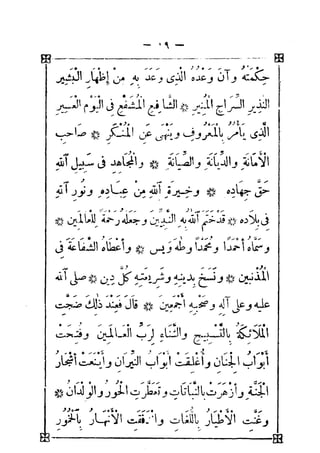 — ١٩ —
حِكْمَتُهُ وَآنَ وَعْدُهُ الَّذِى وَعَدَ بِهِ مِنْ إِظْهَارِ الْبَشِيرِ
النَّذِيرِ السِّرَاجِ الْمُنِيرِ * الشَّافِعِ الْمُشَفَّعِ فِى الْيَوْمِ الْعَسِيرِ
الَّذِى يَأْمُرُ بِالْمَعْرُوفِ وَيَنْهَى عَنِ الْمُنْكَرِ * صَاحِبِ
الْأَمَانَةِ وَالدِّيَانَةِ وَالصِّيَانَةِ * وَالْمُجَاهِدِ فِى سَبِيلِ اللهِ
حَقَّ جِهَادِهِ * وَخِيَرَةِ اللهِ مِنْ عِبَادِهِ وَنُورِ اللهِ
فِى بِلَادِهِ * قَدْ خَتَمَ اللهُ بِهِ النَّبِيِّينَ وَجَعَلَهُ رَحْمَةً لِلْعَالَمِينَ *
وَسَمَّاهُ أَحْمَدًا وَمُحَمَّدًا وَطَهَ وَيس * وَأَعْطَاهُ الشَّفَاعَةَ فِى
الْمُذْنِبِينَ * وَنَسَخَ بِدِينِهِ وَشَرِيعَتِهِ كُلَّ دِينٍ * صَلَّى اللهُ
عَلَيْهِ وَعَلَى آلِهِ وَصَحْبِهِ أَجْمَعِينَ * قَالَ فَعِنْدَ ذَلِكَ ضَجَّتِ
الْمَلَائِكَةُ بِالتَّسْبِيحِ وَالثَّنَاءِ لِرَبِّ الْعَالَمِينَ وَفُتِحَتْ
أَبْوَابُ الْجِنَانِ وَأُغْلِقَتْ أَبْوَابُ النِّيرَانِ وَأَيْنَعَتْ أَشْجَارُ
الْجَنَّةِ وَأَزْهَرَتْ بِالنَّبَاتَاتِ وَتَعَطَّرَتِ الْحُورُ وَالْوِلْدَانُ *
وَغَنَّتِ الْأَطْيَارُ بِاللُّغَاتِ الْأَنْهَارُ بِالْخُمُورِ